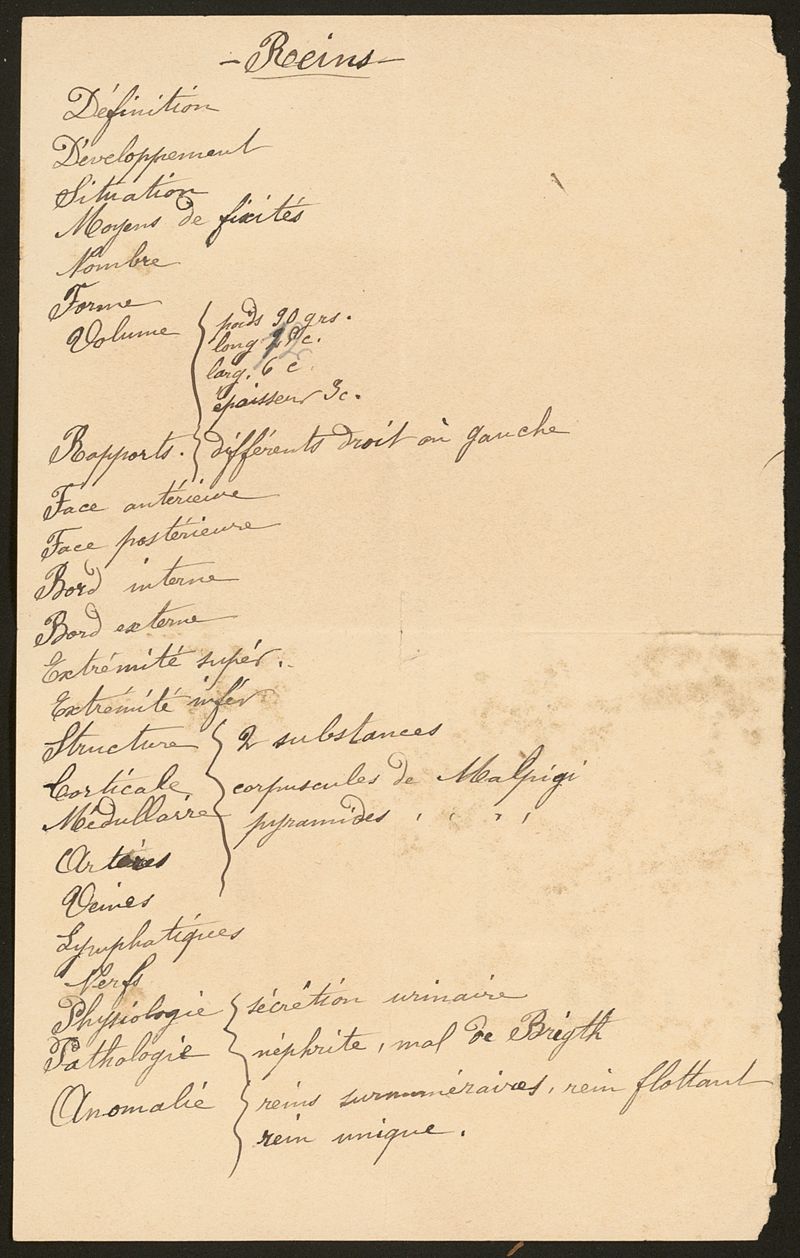 - Reins -
Définition
Développement
Situation
Moyens de fixités
Nombre
Forme
Volume { poids 90 grs.
long 12 c.
larg. 6 c.
épaisseur 3c.
Rapports. différents droit ou gauche
Face antérieure
Face postérieure
Bord interne
Bord externe
Extrémité supér..
Extrémité infér
Structure { 2 substances
Corticale corpuscules de Malpigi
Médullaire pyramides " "
Artères
Veines
Lymphatiques
Nerfs
Physiologie { sécrétion urinaire
Pathologie néphrite, mal de Brigth
Anomalie { reins surnuméraires, rein flottant
rein unique.